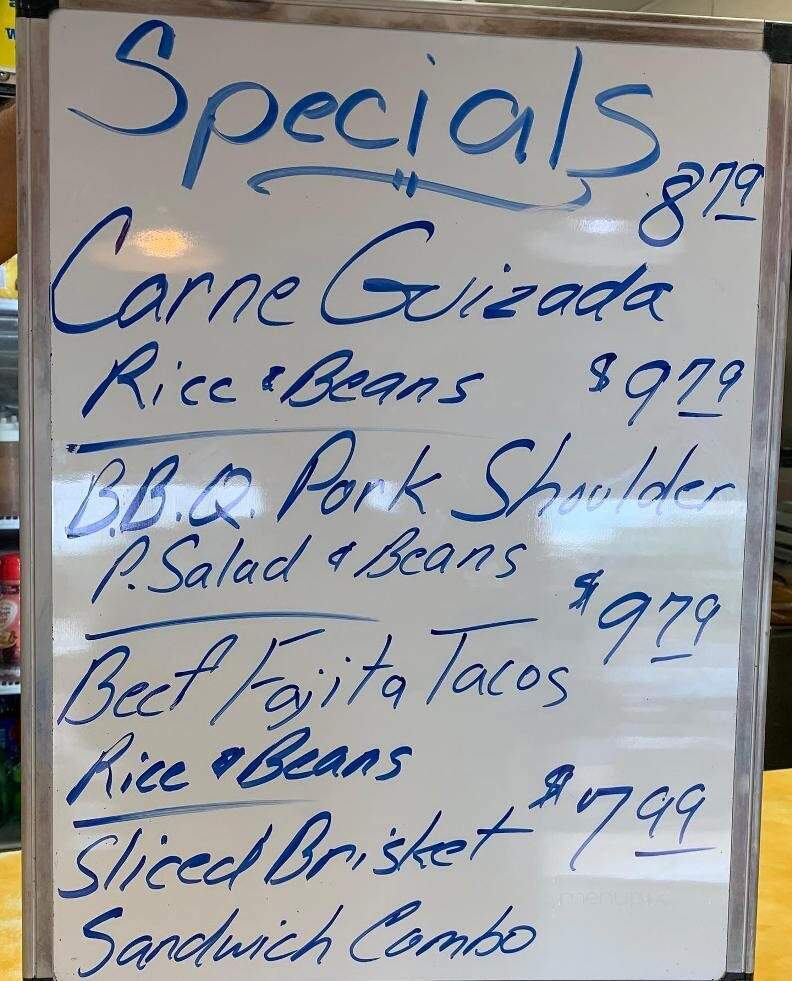 Specials
8 79
Carne Guizada
Rice & Beans $9 79
B.B.Q. Pork Shoulder
P. Salad & Beans
$9 79
Beef Fajita Tacos
Rice & Beans
$7 99
Sliced Brisket
Sandwich Combo